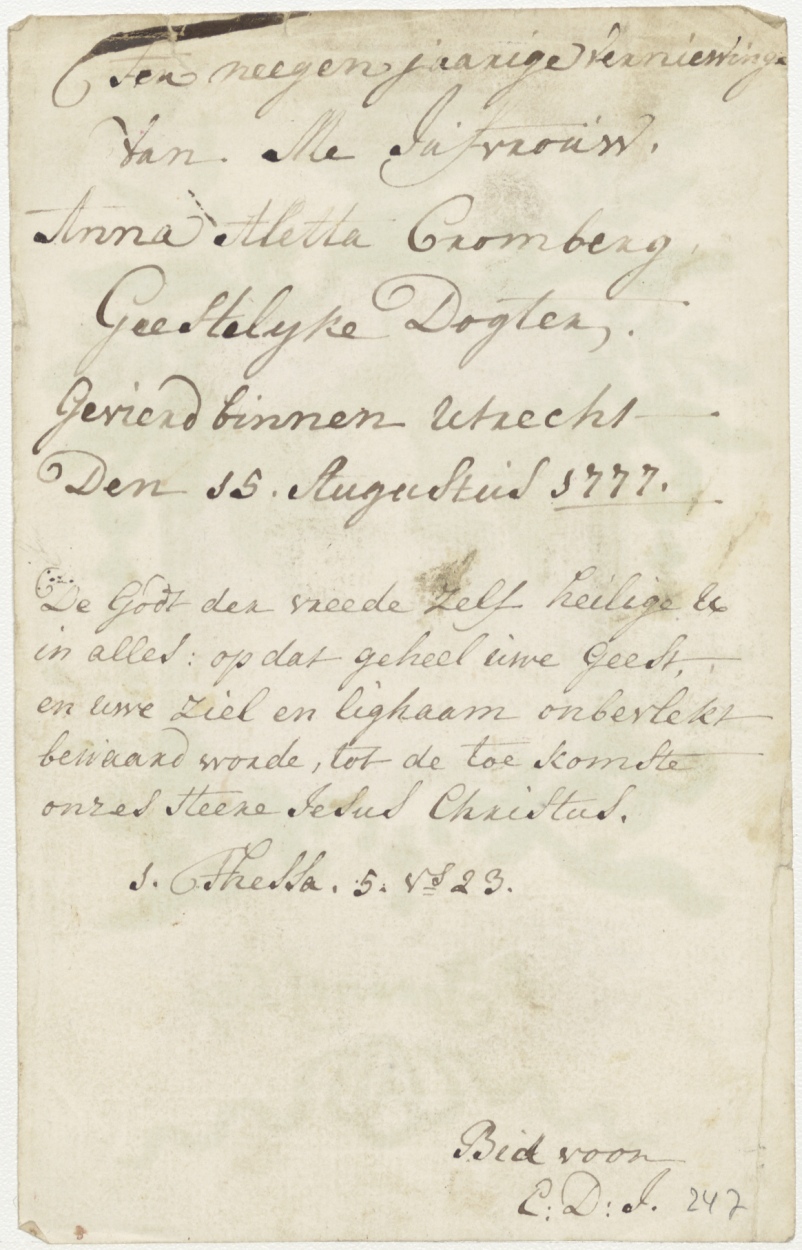 Ter neegen jaarige verniewinge
Van. Me Jufvrouw.
Anna Aletta Cromberg,
Geestelyke Dogter,.
Gevierd binnen Utrecht
Den 15. Augustus 1777.
De Godt der vreede zelf heilige U
in alles: op dat geheel uwe geest,
en uwe ziel en lighaam onbevlekt
bewaard worde, tot de toe komste
onzes Heere Jesus Christus.
1. Thessa. 5. vs 23.
Bid voor
C: D: J. 247